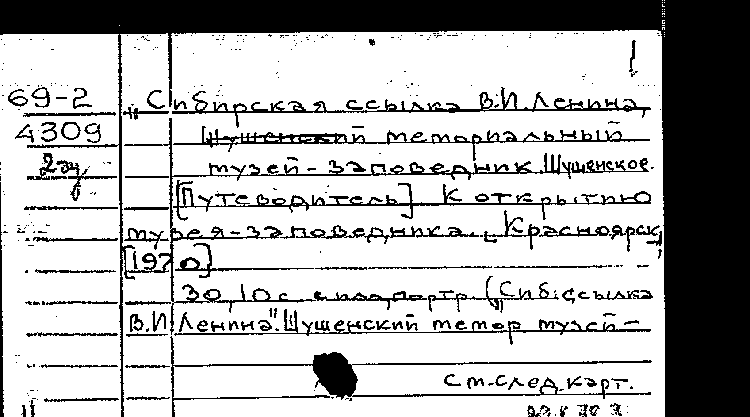 69-2
4309
2 эк
"Сибирская ссылка В.И. Ленина,
Шушенский мемориальный
музей-заповедник. Шушенское.
[Путеводитель] К открытию
музея-заповедника. [Красноярск,
[1970]
30,10 с. с илл, портр. ("Сиб. ссылка
В.И. Ленина". Шушенский мемор музей-
См. след. карт.